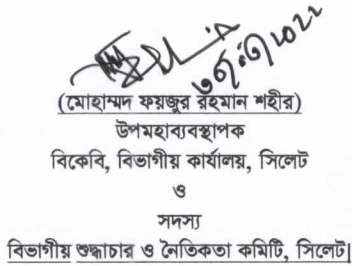 (মোহাম্মদ ফয়জুর রহমান শহীর)
উপমহাব্যবস্থাপক
বিকেবি, বিভাগীয় কার্যালয়, সিলেট
ও
সদস্য
বিভাগীয় শুদ্ধাচার ও নৈতিকতা কমিটি, সিলেট|